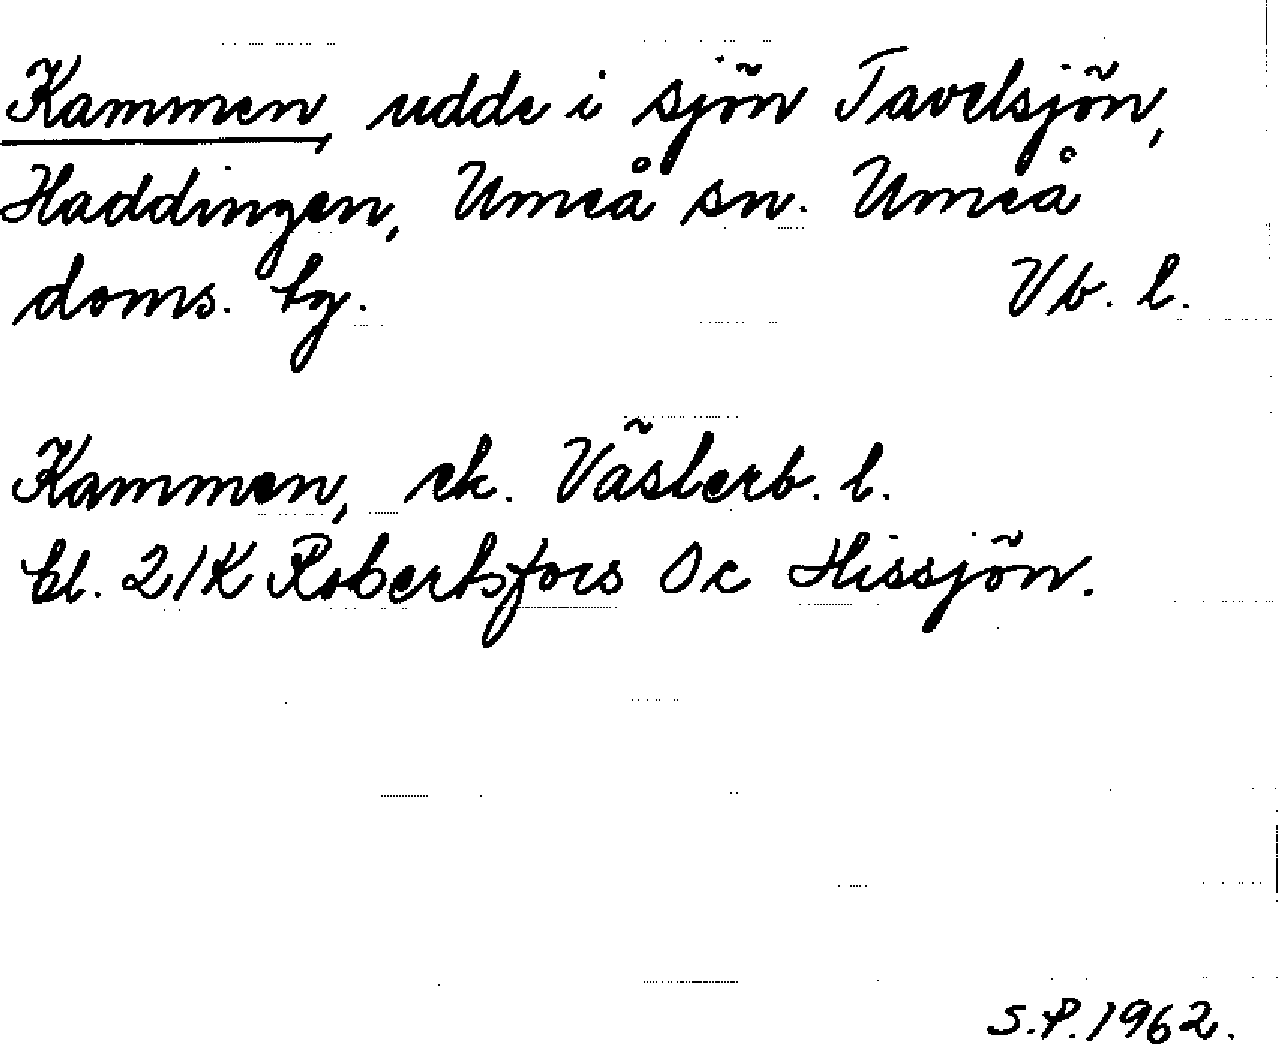 Kammen, udde i sjön Tavelsjön,
Haddingen, Umeå sn. Umeå
doms. tg. Vb. l.
Kammen, ek. Västerb. l.
bl. 21K Robertsfors Oc Hissjön.
S.P. 1962.